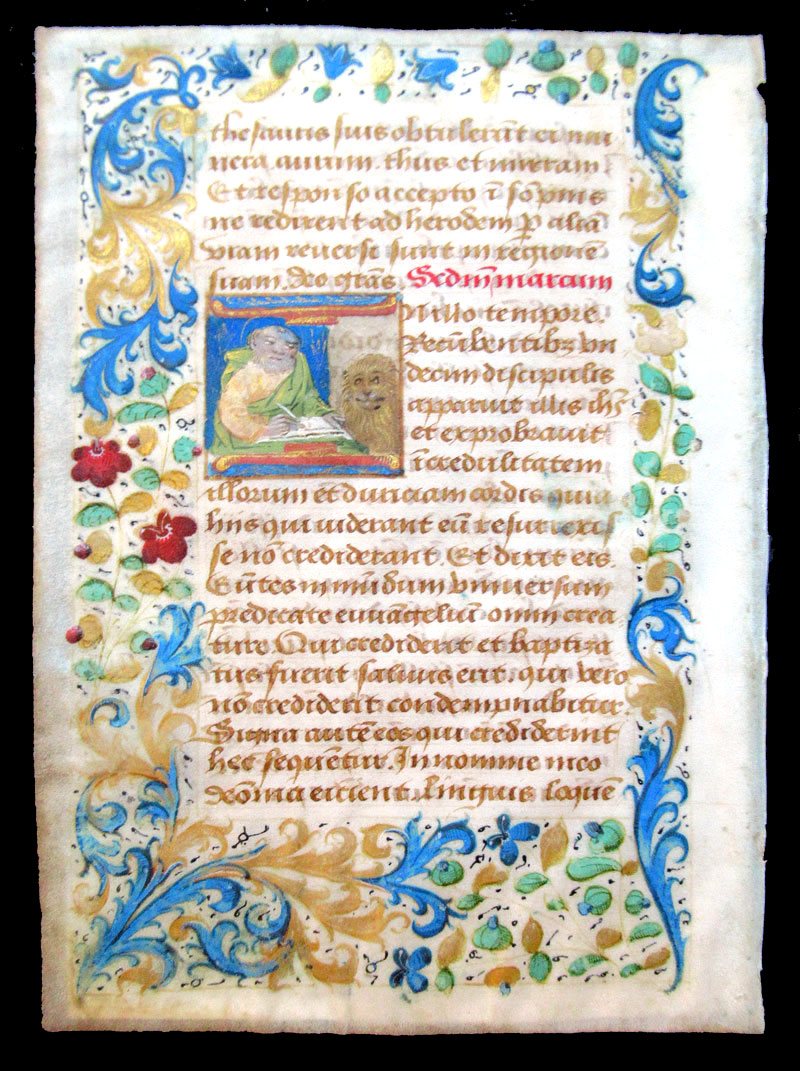 thesauris suis obtulerūt ei mu
nera. aurum. thus et mirram
Et responso accepto ī sōpnis
ne redirent ad herodem p̄ aliā
viam reuersi sunt in regionē
suam. deo grās. Scdm̄ marcum
N illo tempore.
Recūbentibꝫ vn
decim discipulis
apparuit illis ihs̄
et exprobrauit
īcredulitatem
illorum et duriciam cordis quia
hiis qui uiderant eū resurrexis
se nō crediderant. Et dixit eis.
Eūtes in mūdum vniuersum
predicate euuāgeliū omni crea
ture. Qui crediderit et baptiza
tus fuerit saluus erit. qui vero
nō crediderit condempnabitur
Signa autē eos qui crediderint
hec sequētur. In nomine meo
demōia eicient. linguis loquē